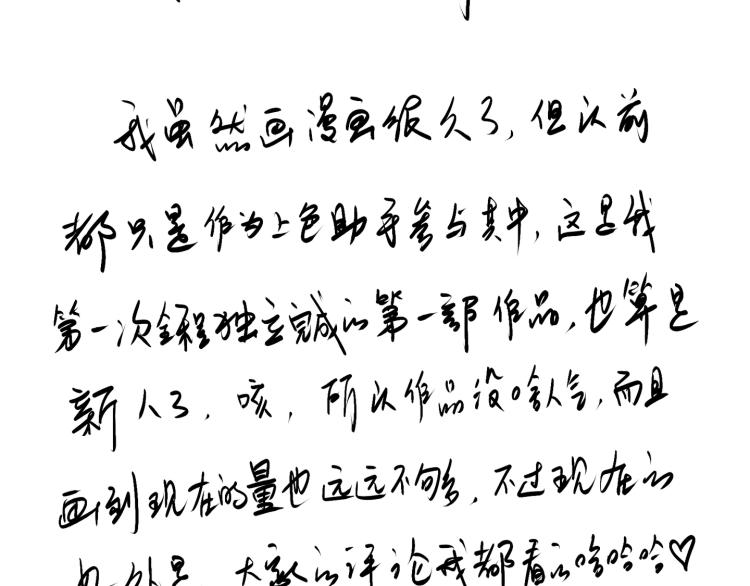 我虽然画漫画很久了，但以前
都只是作为上色助手参与其中，这是我
第一次全程独立完成的第一部作品，也算是
新人了，咳，所以作品没啥人气，而且
画到现在的量也远远不够多，不过现在的
大家的评论我都看的哈哈哈♡